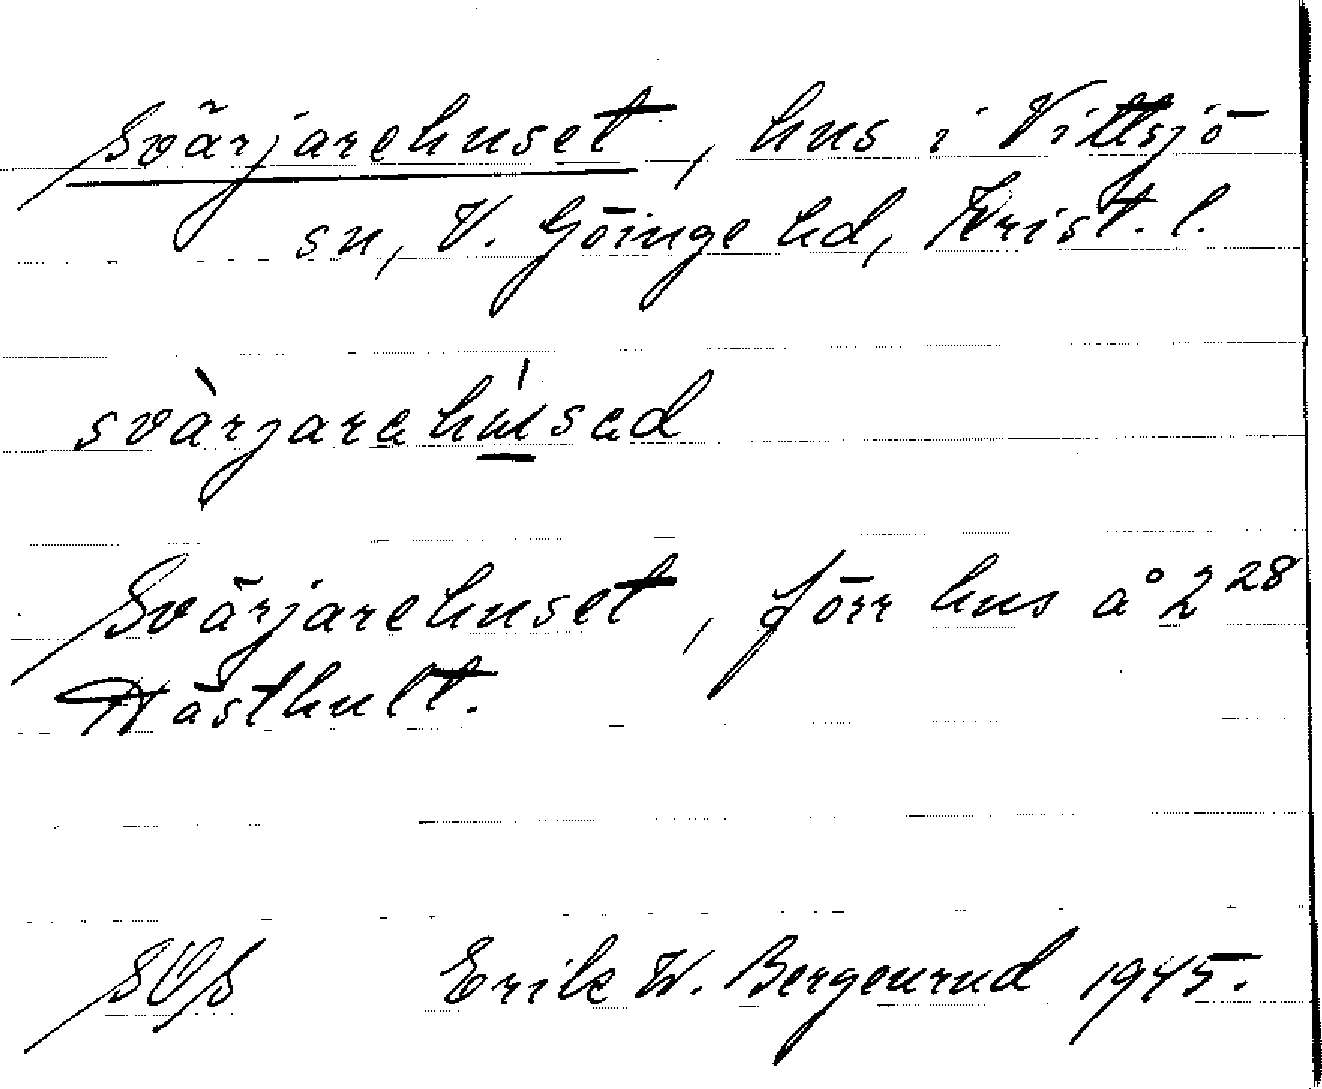 Svärjarehuset, hus i Vittsjö
sn, V. Göinge hd, Krist. l.
svàrjarahúsad
Svärjarehuset, förr hus å 2²⁸
Hästhult.
SOS Erik W. Bergenrud 1945.